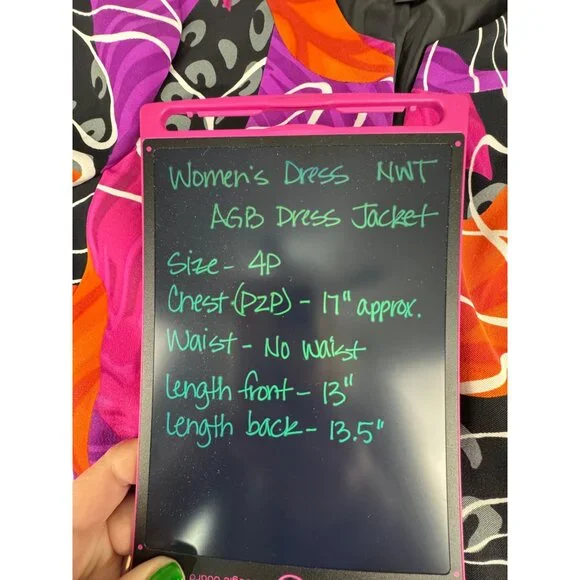 Women's Dress NWT
AGB Dress Jacket
Size - 4P
Chest (P2P) - 17" approx.
Waist - No Waist
Length front - 13"
Length back - 13.5"